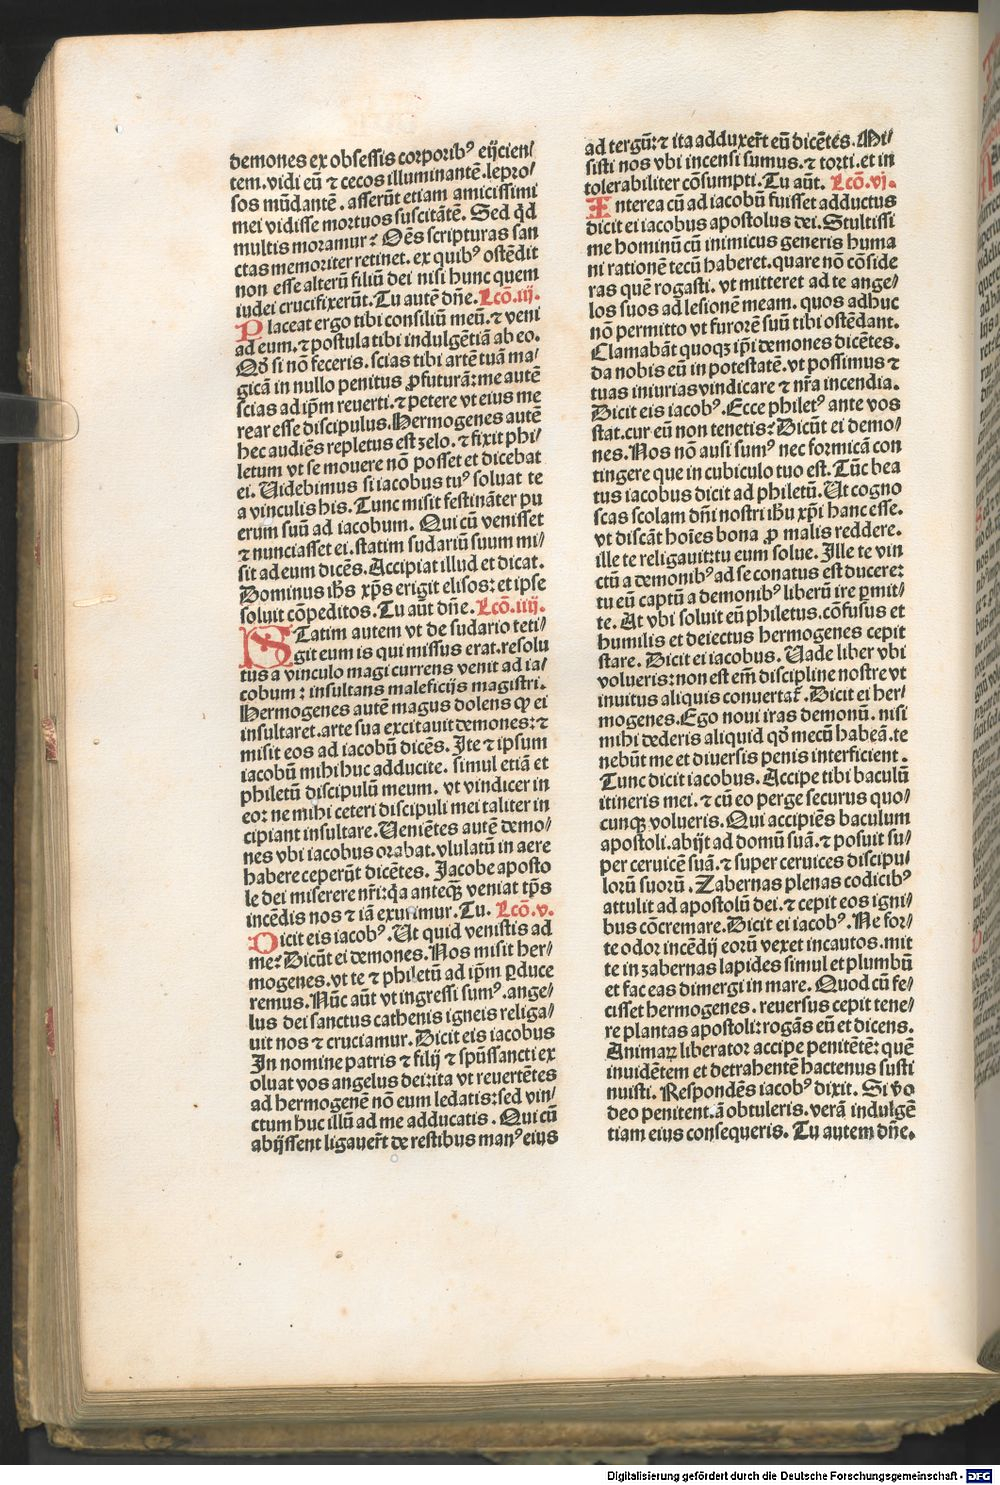 demones ex obsessis corporibꝰ eijcien/
tem.vidi eū ⁊ cecos illuminantē.lepro/
sos mūdantē. asserūt etiam amicissimi
mei vidisse mortuos suscitātē. Sed qͥd
multis moramur? Oēs scripturas san
ctas memoriter retinet. ex quibꝰ ostēdit
non esse alterū filiū dei nisi hunc quem
iudei crucifixerūt. Tu autē dn̄e. Lcō.iij.
Placeat ergo tibi consiliū meū.⁊ veni
ad eum.⁊ postula tibi indulgētiā ab eo.
Qd̓ si nō feceris. scias tibi artē tuā ma/
gicā in nullo penitus ꝓfuturā: me autē
scias ad ip̄m reuerti.⁊ petere vt eius me
rear esse discipulus. Hermogenes autē
hec audiēs repletus est zelo.⁊ fixit phi/
letum vt se mouere nō posset et dicebat
ei. Uidebimus si iacobus tuꝰ soluat te
a vinculis his. Tunc misit festināter pu
erum suū ad iacobum. Qui cū venisset
⁊ nunciasset ei. statim sudariū suum mi/
sit ad eum dicēs. Accipiat illud et dicat.
Dominus ihs̄ xp̄s erigit elisos: et ipse
soluit cōpeditos. Tu aūt dn̄e. Lcō.iiij.
STatim autem vt de sudario teti/
git eum is qui missus erat.resolu
tus a vinculo magi currens venit ad ia/
cobum: insultans maleficijs magistri.
Hermogenes autē magus dolens ꝙ ei
insultaret.arte sua excitauit demones: ⁊
misit eos ad iacobū dicēs. Ite ⁊ ipsum
iacobū mihi huc adducite. simul etiā et
philetū discipulū meum. vt vindicer in
eo: ne mihi ceteri discipuli mei taliter in
cipiant insultare. Ueniētes autē demo/
nes vbi iacobus orabat.vlulatū in aere
habere ceperūt dicētes. Jacobe aposto
le dei miserere nr̄i: qͣ anteqꝫ̄ veniat tp̄s
incēdis nos ⁊ iā exurimur. Tu. Lcō.v.
Dicit eis iacobꝰ. Ut quid venistis ad
me? Dicūt ei demones. Nos misit her/
mogenes.vt te ⁊ philetū ad ip̄m ꝑduce
remus. Nūc aūt vt ingressi sumꝰ.ange/
lus dei sanctus cathenis igneis religa/
uit nos ⁊ cruciamur. Dicit eis iacobus
In nomine patris ⁊ filij ⁊ sp̄ussancti ex
oluat vos angelus dei: ita vt reuertētes
ad hermogenē nō eum ledatis: sed vin/
ctum huc illū ad me adducatis. Qui cū
abijssent ligauer̄t de restibus manꝰ eius
ad tergū: ⁊ ita adduxer̄t eū dicētes. Mi/
sisti nos vbi incensi sumus.⁊ torti.et in
tolerabiliter cōsumpti. Tu aūt. Lcō.vj.
Interea cū ad iacobū fuisset adductus
dicit ei iacobus apostolus dei. Stultissi
me hominū cū inimicus generis huma
ni rationē tecū haberet.quare nō cōside
ras quē rogasti. vt mitteret ad te ange/
los suos ad lesionē meam. quos adhuc
nō permitto vt furorē suū tibi ostēdant.
Clamabāt quoqꝫ ip̄i demones dicētes.
da nobis eū in potestatē.vt possimus ⁊
tuas iniurias vindicare ⁊ nr̄a incendia.
Dicit eis iacobꝰ. Ecce philetꝰ ante vos
stat.cur eū non tenetis? Dicūt ei demo/
nes. Nos nō ausi sumꝰ nec formicā con
tingere que in cubiculo tuo est. Tūc bea
tus iacobus dicit ad philetū. Ut cogno
scas scolam dn̄i nostri ihū xp̄i hanc esse.
vt discāt hoīes bona ꝓ malis reddere.
ille te religauit: tu eum solue. Ille te vin
ctū a demonibꝰ ad se conatus est ducere:
tu eū captū a demonibꝰ liberū ire ꝑmit/
te. At vbi soluit eū philetus.cōfusus et
humilis et deiectus hermogenes cepit
stare. Dicit ei iacobus. Uade liber vbi
volueris: non est em̄ discipline nostre vt
inuitus aliquis conuertat̄. Dicit ei her/
mogenes. Ego noui iras demonū. nisi
mihi dederis aliquid qd̓ mecū habeā.te
nebūt me et diuersis penis interficient.
Tunc dicit iacobus. Accipe tibi baculū
itineris mei.⁊ cū eo perge securus quo/
cunqꝫ volueris. Qui accipiēs baculum
apostoli.abijt ad domū suā.⁊ posuit su/
per ceruicē suā.⁊ super ceruices discipu/
lorū suorū. Zabernas plenas codicibꝰ
attulit ad apostolū dei.⁊ cepit eos igni/
bus cōcremare. Dicit ei iacobꝰ. Ne for/
te odor incēdij eorū vexet incautos.mit
te in zabernas lapides simul et plumbū
et fac eas dimergi in mare. Quod cū fe/
cisset hermogenes. reuersus cepit tene/
re plantas apostoli: rogās eū et dicens.
Animaꝝ liberator accipe penitētē: quē
inuidētem et detrahentē hactenus susti
nuisti. Respondēs iacobꝰ dixit. Si v̓o
deo penitentiā obtuleris. verā indulgē
tiam eius consequeris. Tu autem dn̄e.
Digitalisierung gefördert durch die Deutsche Forschungsgemeinschaft - DFG